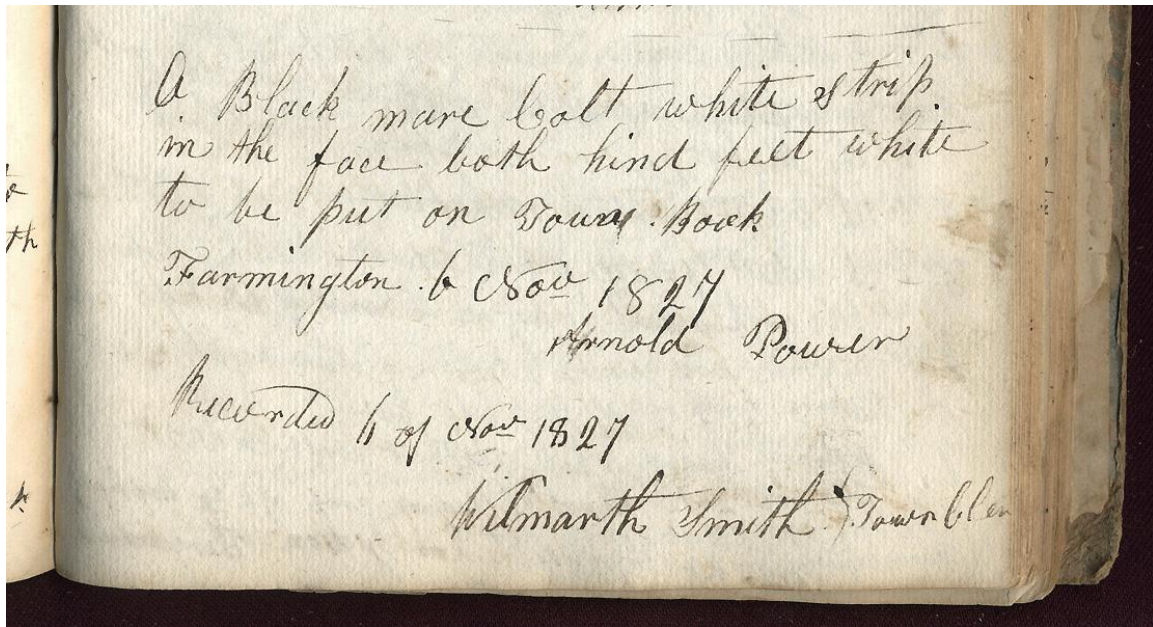 A Black mare Colt white Strip
in the face both hind feet white
to be put on Town Book
Farmington 6 Nov 1827
Arnold Power
Recorded 6 of Nov 1827
Wilmarth Smith } Town Cler
th